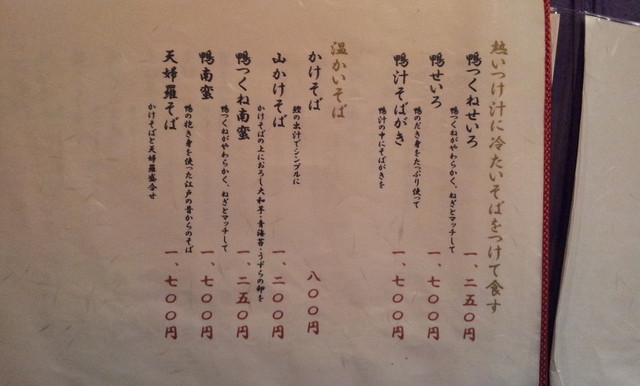 熱いつけ汁に冷たいそばをつけて食す
鴨つくねせいろ
鴨つくねがやわらかく、ねぎとマッチして
一、二五〇円
鴨せいろ
鴨のだき身をたっぷり使って
一、七〇〇円
鴨汁そばがき
鴨汁の中にそばがきを
一、七〇〇円
温かいそば
かけそば
鰹の出汁でシンプルに
八〇〇円
山かけそば
かけそばの上におろし大和芋・青海苔・うずらの卵を
一、二〇〇円
鴨つくね南蛮
鴨つくねがやわらかく、ねぎとマッチして
一、二五〇円
鴨南蛮
鴨の抱き身を使った江戸の昔からのそば
一、七〇〇円
天婦羅そば
かけそばと天婦羅盛合せ
一、七〇〇円